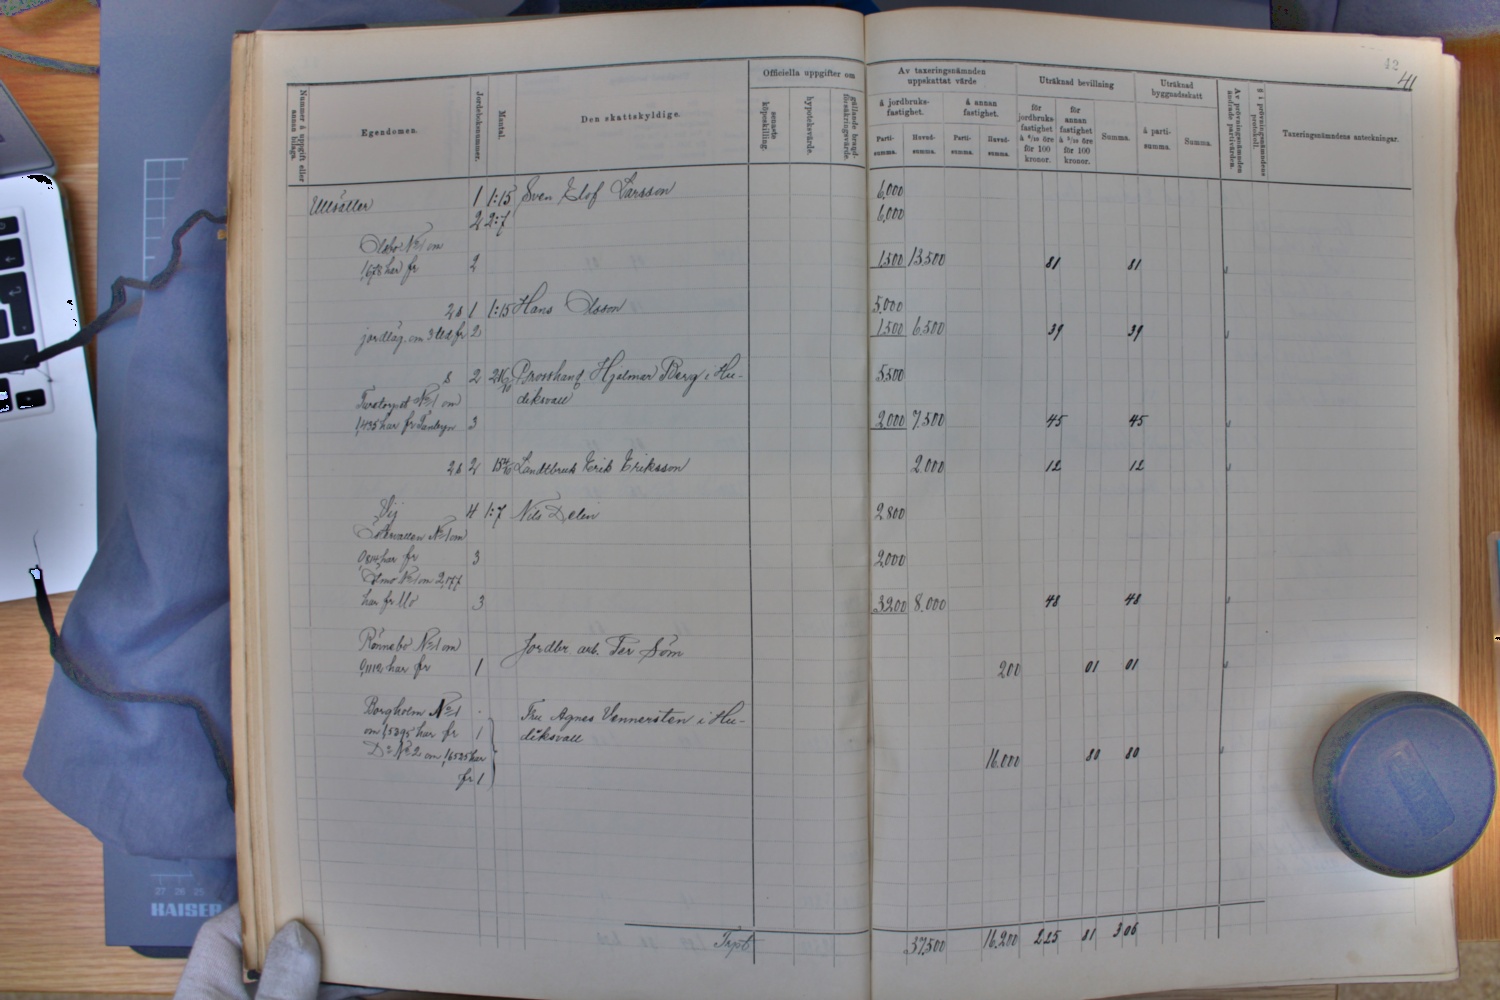 42
41
Nummer å uppgift eller annan bilaga.
Egendomen.
Jordeboksnummer.
Mantal.
Den skattskyldige.
Officiella uppgifter om
senaste köpeskilling.
hypoteksvärde.
gällande brandförsäkringsvärde.
Av taxeringsnämnden uppskattat värde
å jordbruks-fastighet.
å annan fastighet.
Parti-summa.
Huvud-summa.
Parti-summa.
Huvud-summa.
Uträknad bevillning
för jordbruks-fastighet à 6/10 öre för 100 kronor.
för annan fastighet à 5/10 öre för 100 kronor.
Summa.
Uträknad byggnadsskatt
å parti-summa.
Summa.
Av prövningsnämnden ändrade partivärden.
§ i prövningsnämndens protokoll.
Taxeringsnämndens anteckningar.
Ullsäter 1 1:15 Sven Elof Larsson 6,000
2 2:7 6,000
Olsbo No 1 om
har fr 2 1,500 13,500 81 81
2 1 1:15 Hans Olsson 5,000
jordläg. om 3 fr 2 1,500 6,500 39 39
2 Grosshand Hjalmar Berg i Hu- 5,500
No 1 om diksvall
1,435 har fr 3 2,000 7,500 45 45
2 Landtbruk Erik Eriksson 2,000 12 12
Vij 4 1:7 Nils Delin 2,800
No 1 om
har fr 3 2,000
No 1 om 2,077
har fr 3 3,200 8,000 48 48
Rönnebo No 1 om Jordbr. arb. Per Söm
har fr 1 200 01 01
Borgholm No 1 Fru Agnes Vennersten i Hu-
om 1,5395 har fr 1 diksvall
Do No 2 om 1,6525 har 16,000 80 80
fr 1
Tspt 37,500 16,200 2 25 81 3 06
27 26 25
KAISER